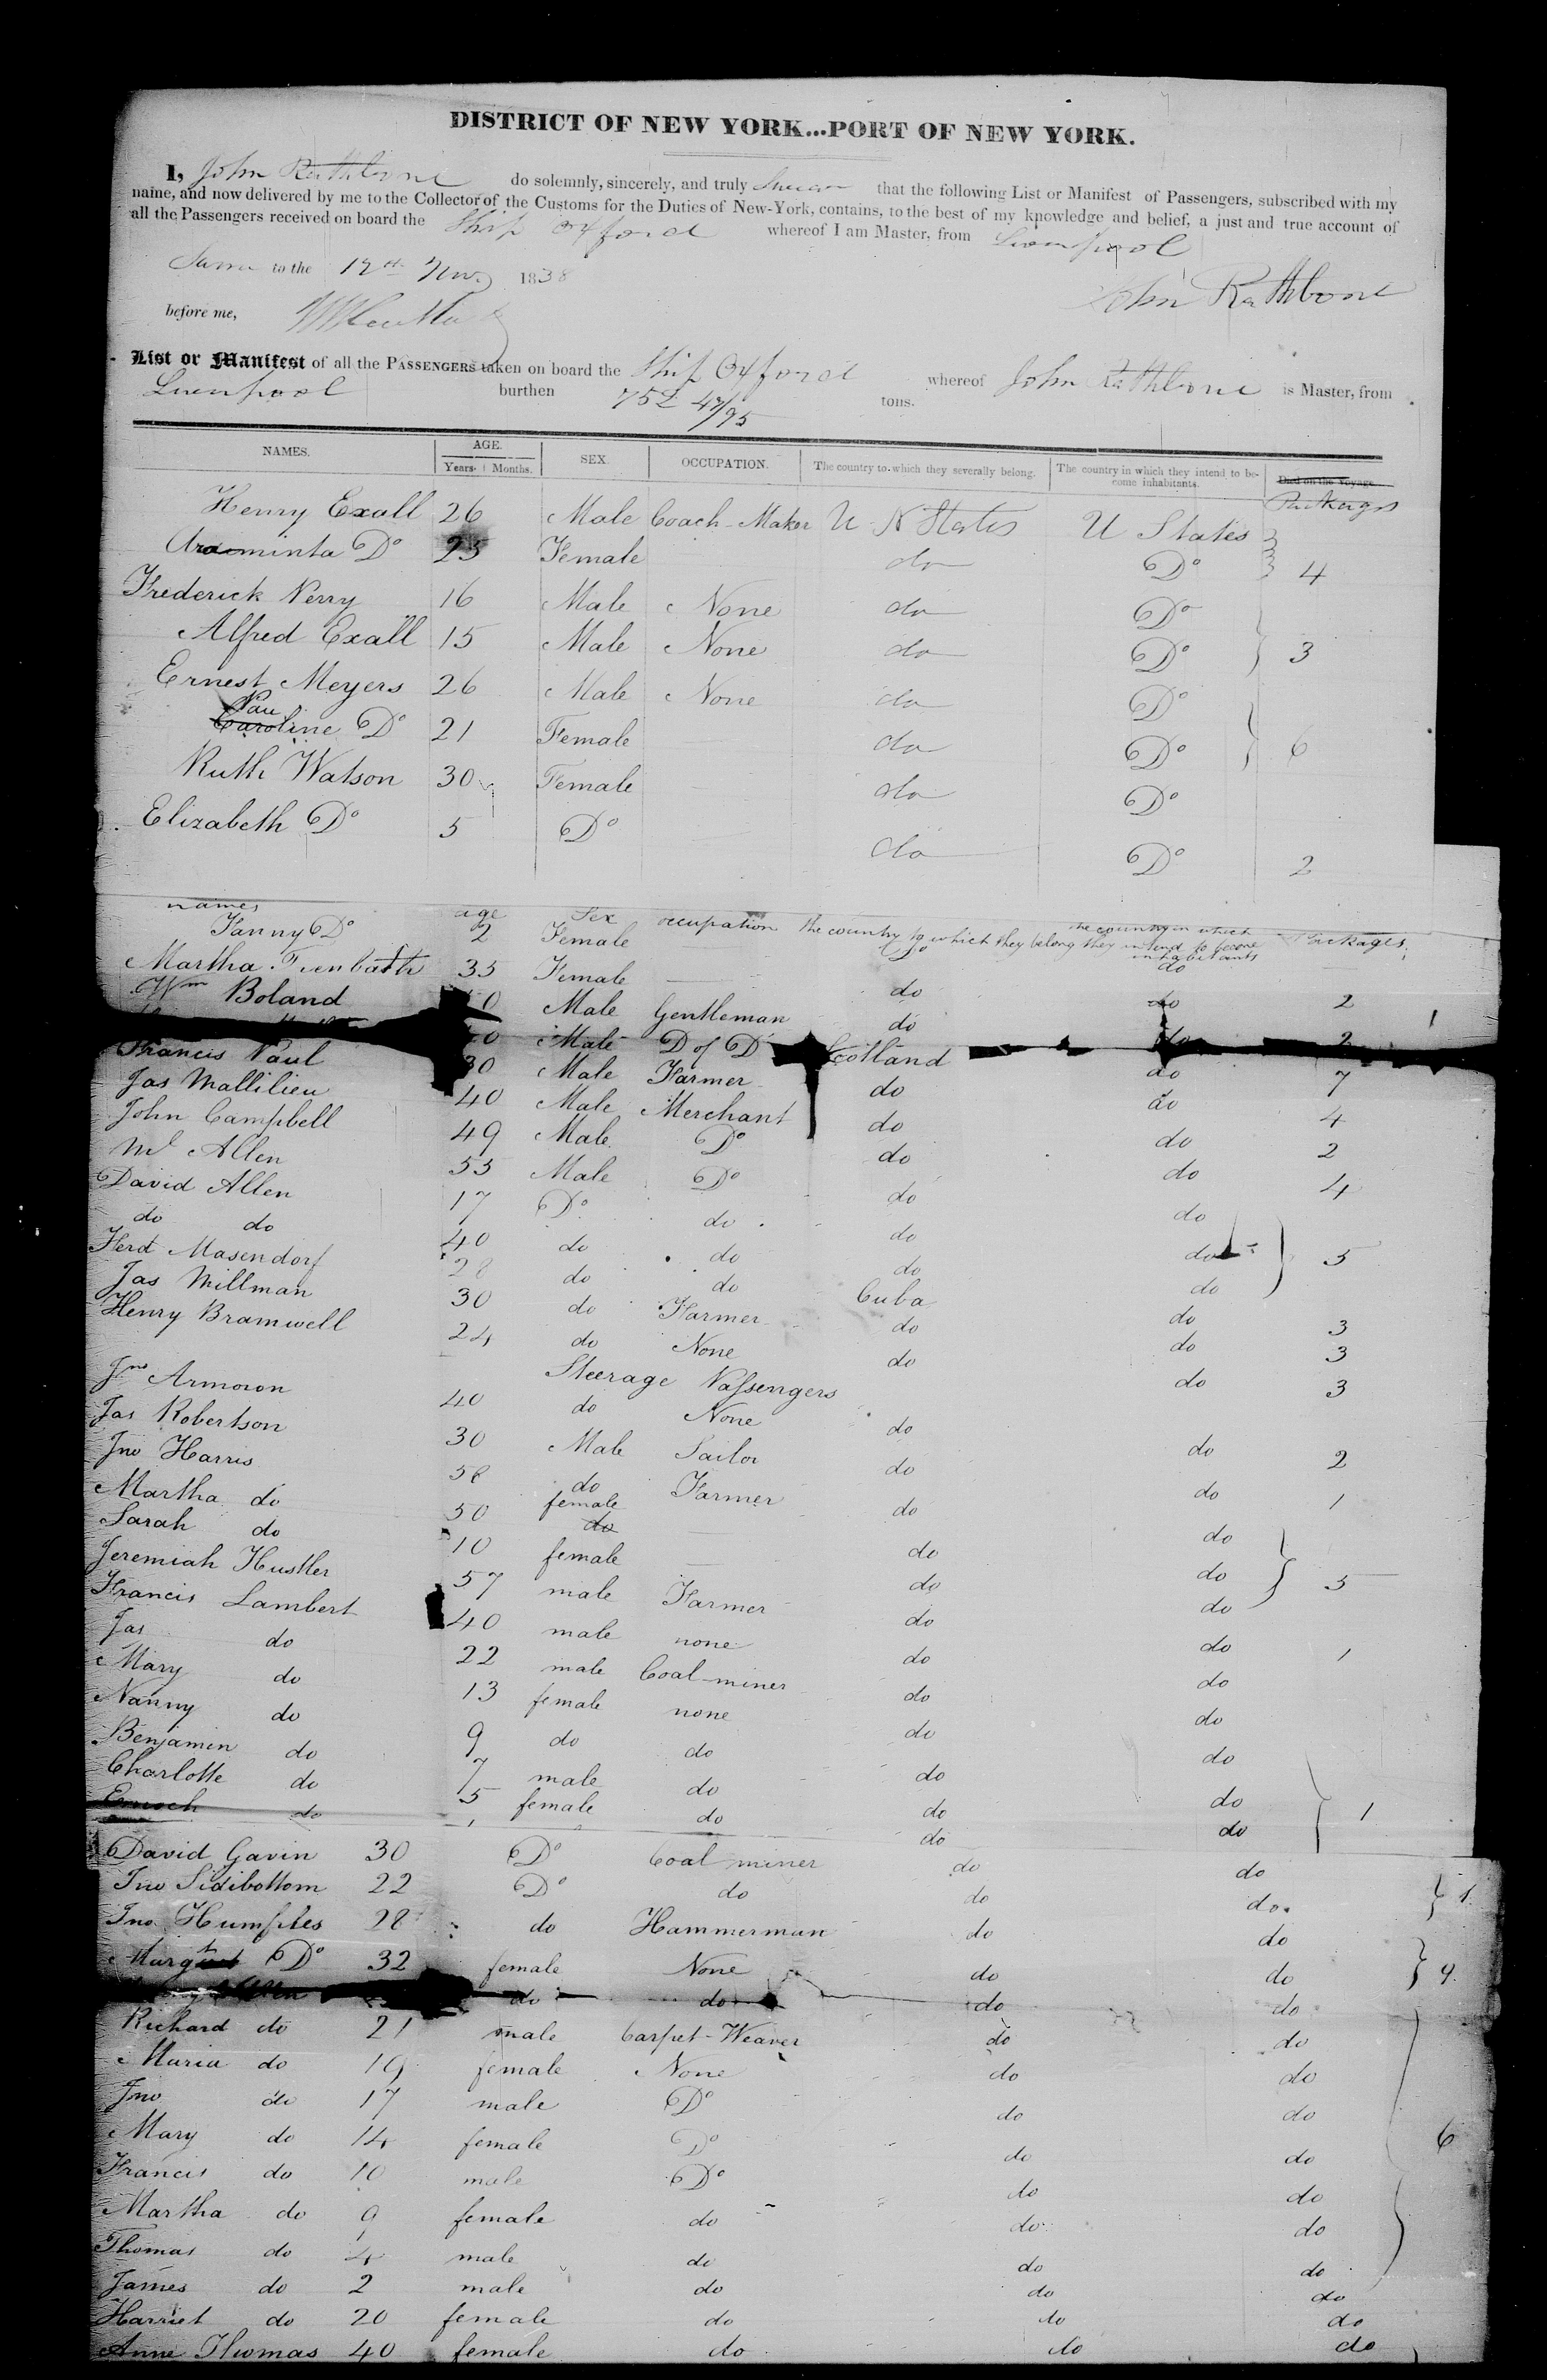 DISTRICT OF NEW YORK...PORT OF NEW YORK.
I, John Rathbone do solemnly, sincerely, and truly Swear that the following List or Manifest of Passengers, subscribed with my
name, and now delivered by me to the Collector of the Customs for the Duties of New-York, contains, to the best of my knowledge and belief, a just and true account of
all the Passengers received on board the Ship Oxford whereof I am Master, from Liverpool
to the 12th Nov 1838
John Rathbone
before me,
List or Manifest of all the PASSENGERS taken on board the Ship Oxford whereof John Rathbone is Master, from
Liverpool burthen 752 47/95 tons.
NAMES. AGE. Years. Months. SEX. OCCUPATION. The country to which they severally belong. The country in which they intend to become inhabitants. Died on the Voyage.
Packages
Henry Exall 26 Male Coach-Maker U. N States U States
Araminta Do 23 Female do Do 4
Frederick Perry 16 Male None do Do
Alfred Exall 15 Male None do Do 3
Ernest Meyers 26 Male None do Do
Pauline Do 21 Female do Do 6
Ruth Watson 30 Female do Do
Elizabeth Do 5 Do do Do 2
names age Sex occupation the country to which they belong the country in which they intend to become inhabitants Packages
Fanny Do 2 Female do do
Martha 35 Female do do 2
Wm Boland Male Gentleman do do 2
Male D of D Scotland do 7
Francis Paul 30 Male Farmer do do 4
Jas Mallilieu 40 Male Merchant do do 2
John Campbell 49 Male Do do do 4
Ml Allen 55 Male Do do do
David Allen 17 Do do do do 5
do do 40 do do do do
Ferdt Masendorf 28 do do Cuba do 3
Jas Millman 30 do Farmer do do 3
Henry Bramwell 24 do None do do 3
Steerage Passengers
Jno 40 do None do do 2
Jas Robertson 30 Male Sailor do do 1
Jno Harris 58 do Farmer do do
Martha do 50 female do do do 5
Sarah do 10 female do do
Jeremiah Hustler 57 male Farmer do do 1
Francis Lambert 40 male none do do
Jas do 22 male Coal-miner do do
Mary do 13 female none do do
Nanny do 9 do do do do
Benjamin do 7 male do do do 1
Charlotte do 5 female do do do
Enoch do
David Gavin 30 Do Coal miner do do
Jno Sidibottom 22 Do do do do 1
Jno Humphles 28 do Hammerman do do
Margt Do 32 female None do do 4
Allen do do do do
Richard do 21 male Carpet-Weaver do do
Maria do 19 female None do do
Jno do 17 male Do do do
Mary do 14 female Do do do 6
Francis do 10 male Do do do
Martha do 9 female do do do
Thomas do 4 male do do do
James do 2 male do do do
Harriet do 20 female do do do
Anne Thomas 40 female do do do